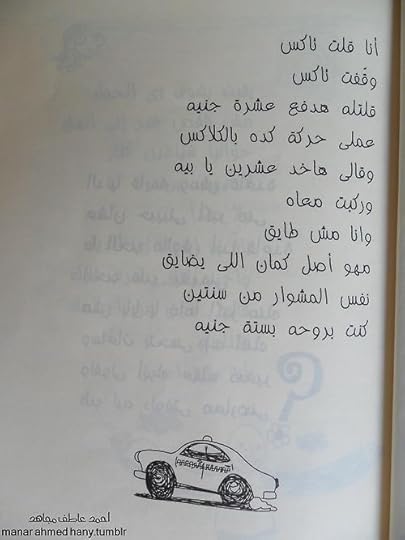 أنا قلت تاكس
وقفت تاكس
قلتله هدفع عشرة جنيه
عملى حركة كده بالكلاكس
وقالى هاخد عشرين يا بيه
وركبت معاه
وانا مش طايق
مهو أصل كمان اللى يضايق
نفس المشوار من سنتين
كنت بروحه بستة جنيه
أحمد عاطف مجاهد
manar ahmed hany.tumblr